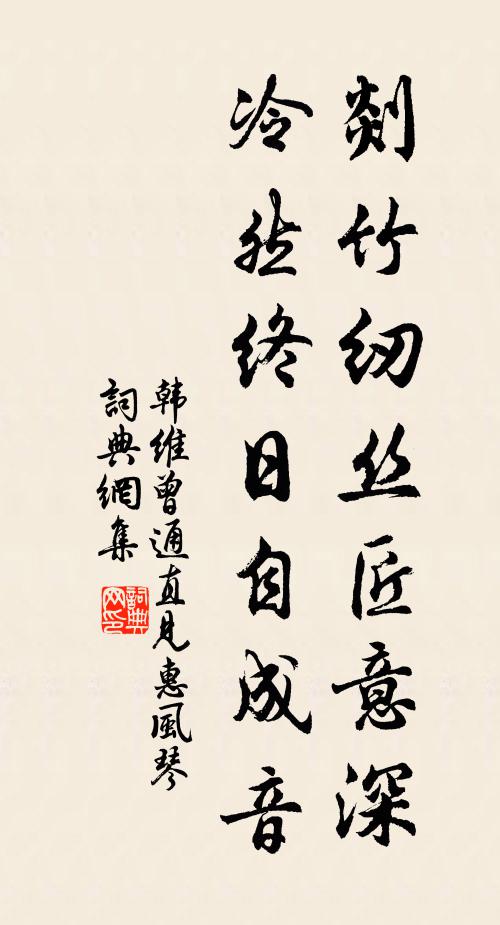 剡竹纫丝匠意深
冷然终日自成音
韩维曾通直见惠風琴
詞典網集
詞典
网印